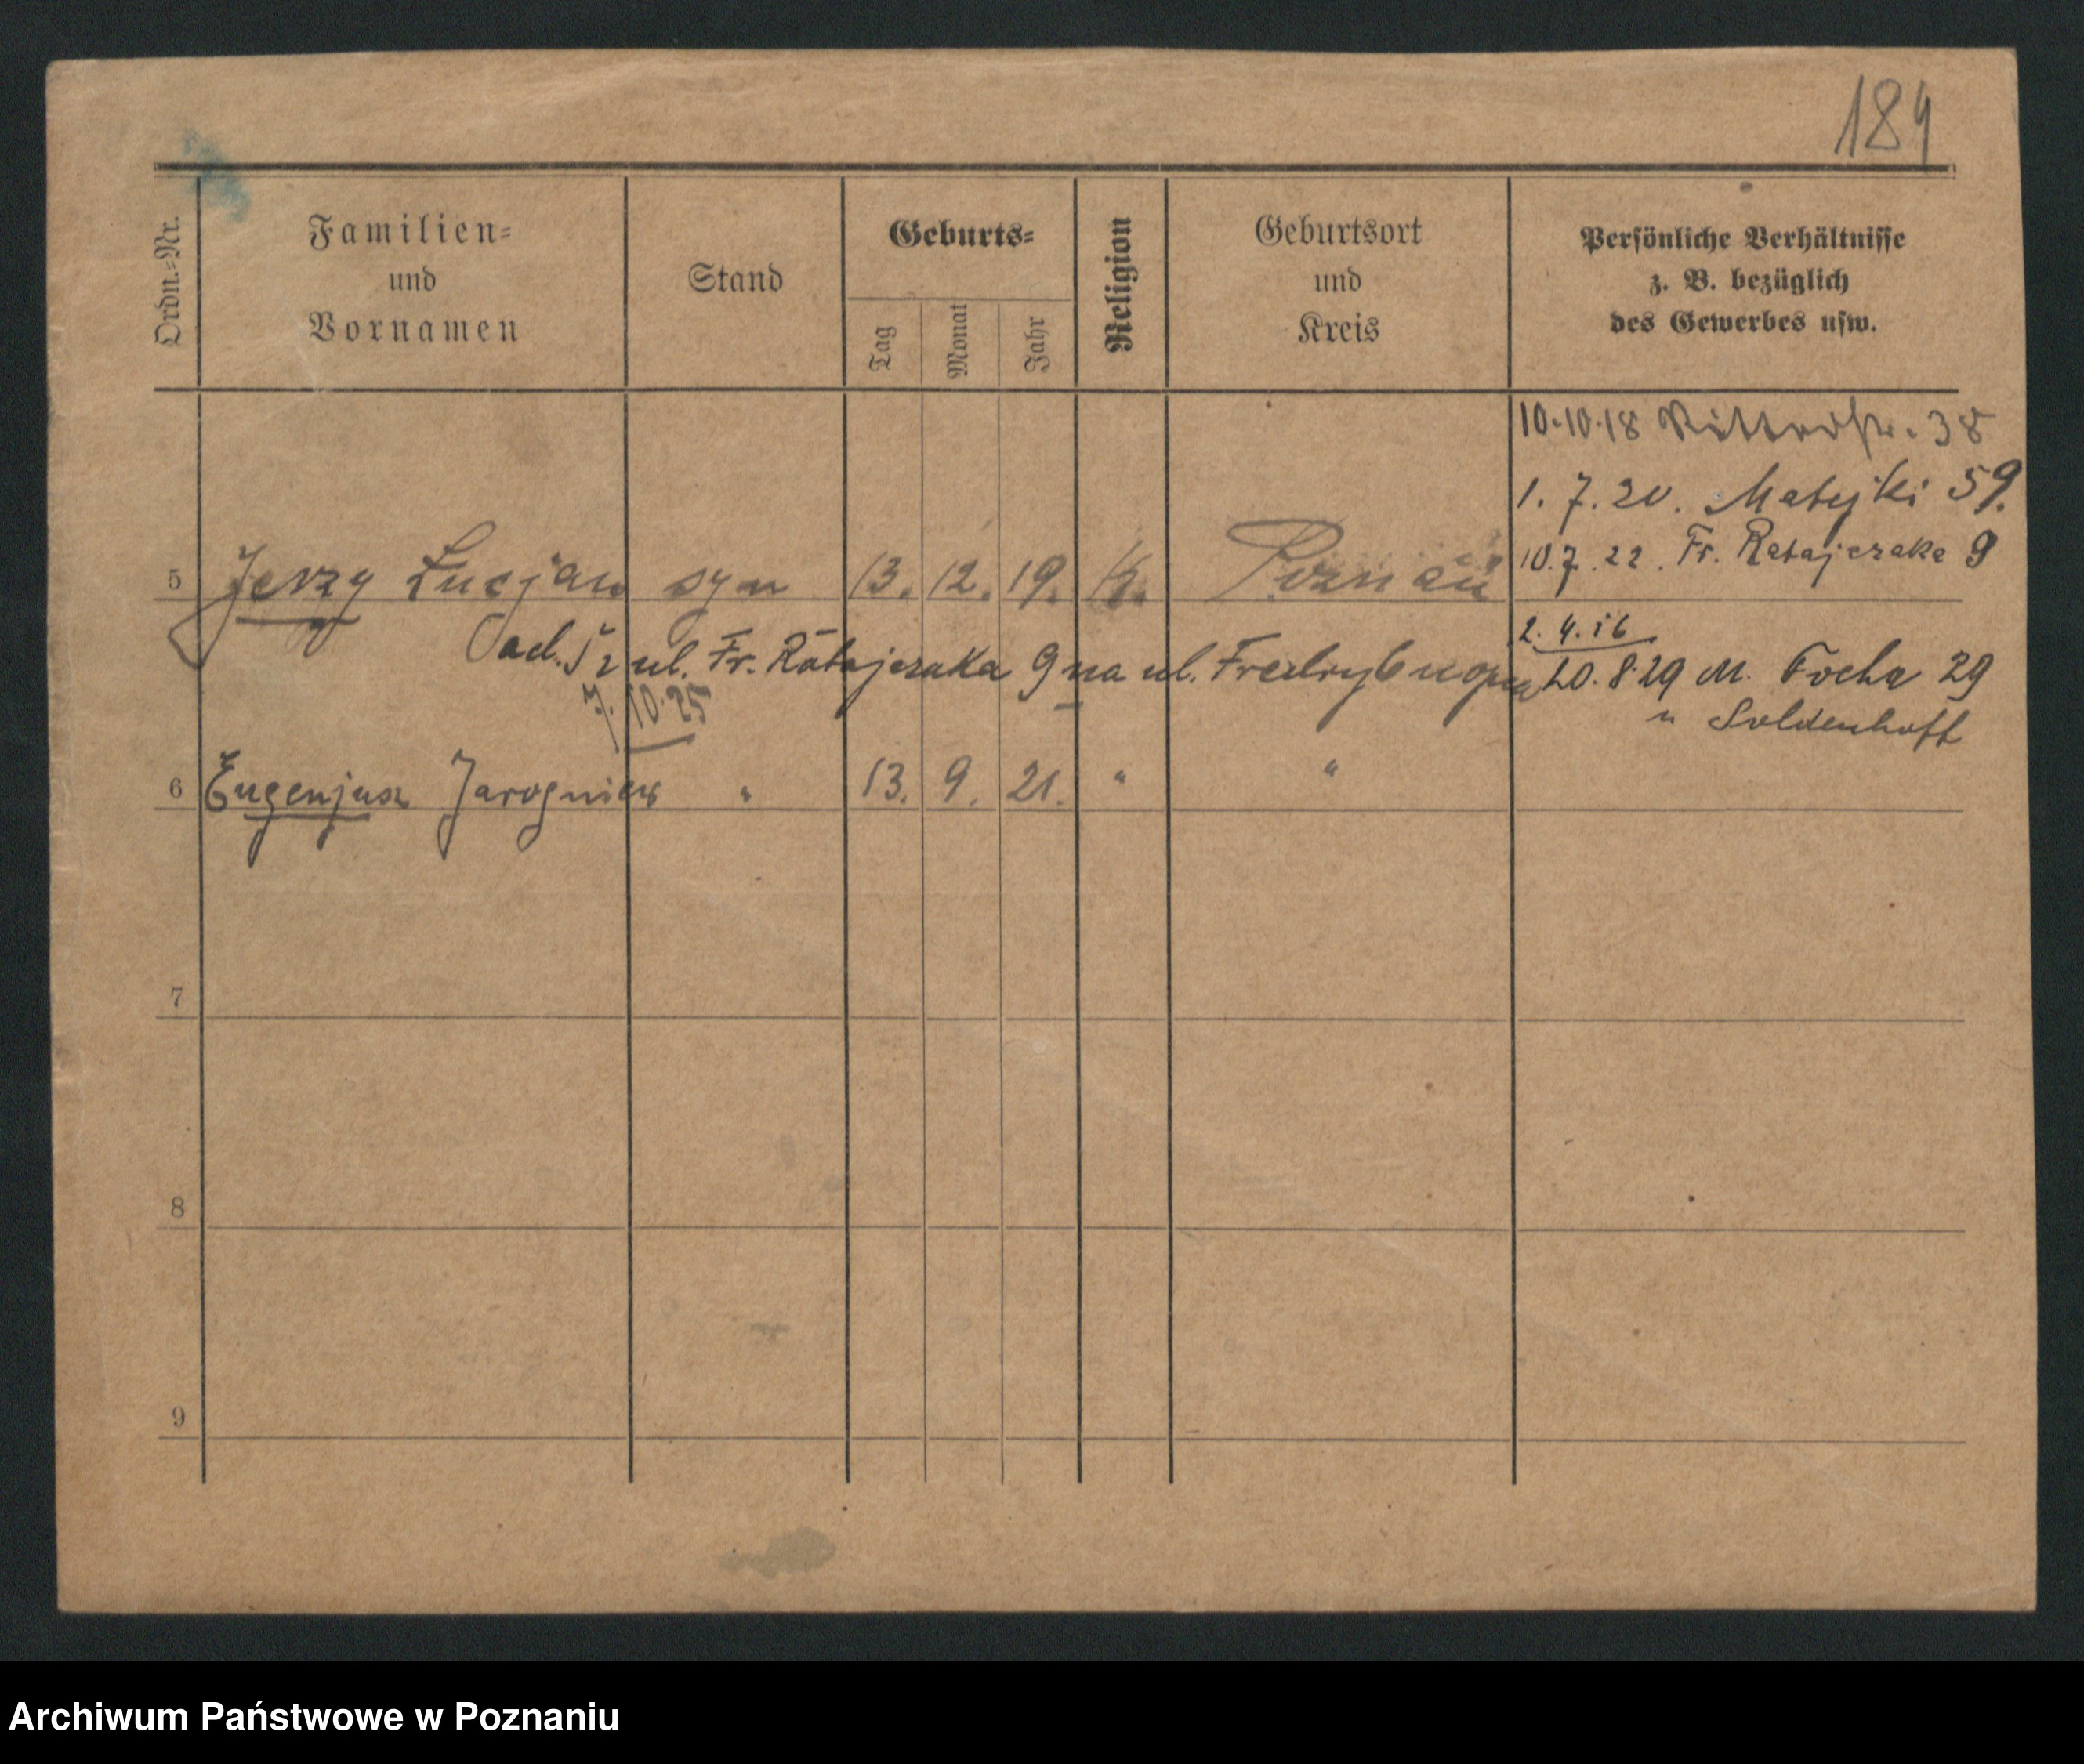 184
Ordn.-Nr.
Familien-
und
Vornamen
Stand
Geburts-
Tag
Monat
Jahr
Religion
Geburtsort
und
Kreis
Persönliche Verhältnisse
z. B. bezüglich
des Gewerbes usw.
10.10.18 Ritterstr. 38
1. 7. 20. Matejki 59.
10.7.22. Fr. Ratajczaka 9
5 Jerzy Lucjan syn 13. 12. 19. k. Poznań
2. 4. 26
ad. 5 z ul. Fr. Ratajczaka 9 na ul. Fredry 6 u
20.8.29 M. Focha 29
u Soldenhoff
7.10.25
6 Eugenjusz Jarogniew " 13. 9. 21. " "
7
8
9
Archiwum Państwowe w Poznaniu